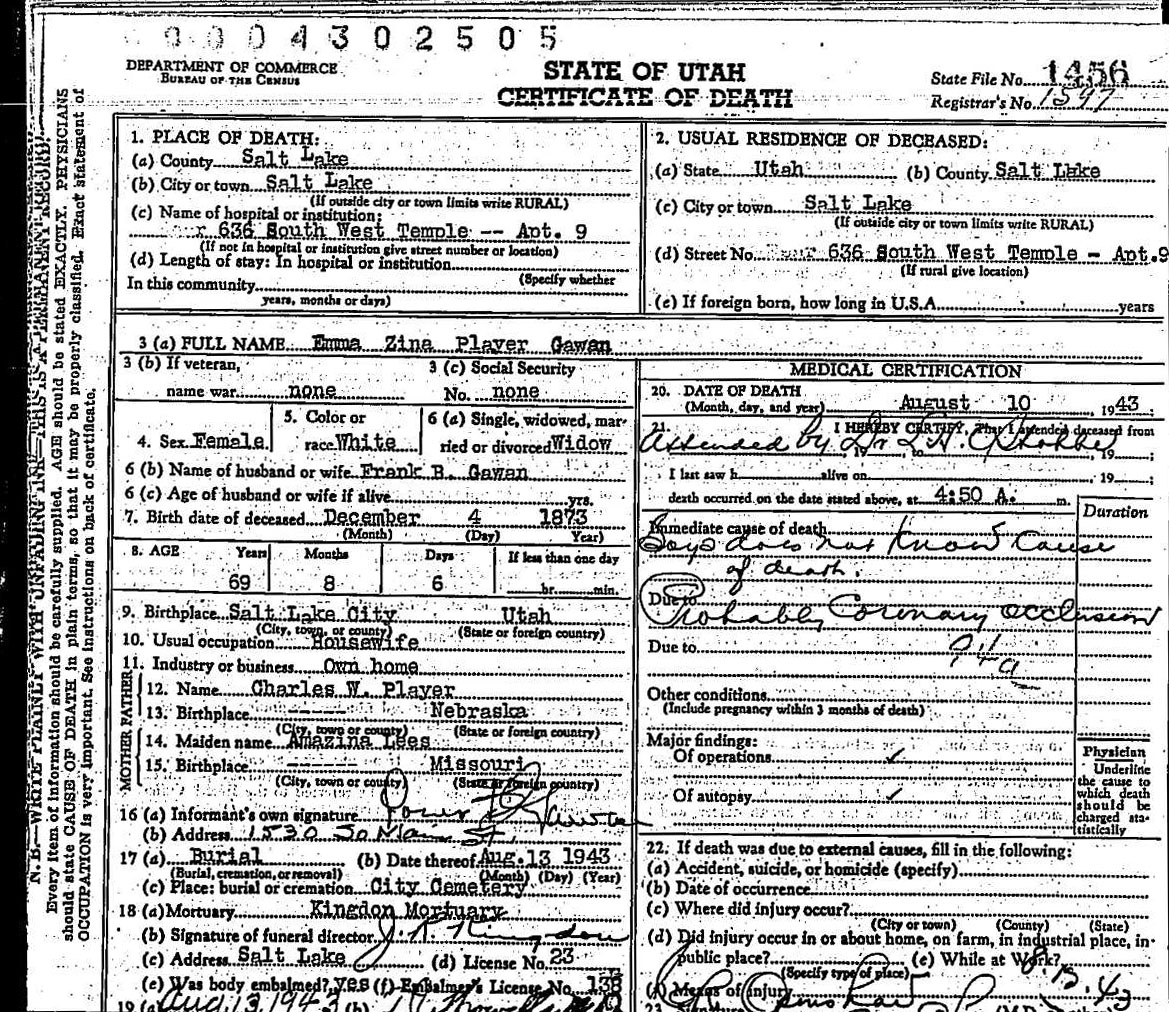 0004302505
DEPARTMENT OF COMMERCE
BUREAU OF THE CENSUS
STATE OF UTAH
CERTIFICATE OF DEATH
State File No. 1456
Registrar's No. 1597
N. B.—WRITE PLAINLY WITH UNFADING INK—THIS IS A PERMANENT RECORD.
Every item of information should be carefully supplied. AGE should be stated EXACTLY. PHYSICIANS
should state CAUSE OF DEATH in plain terms, so that it may be properly classified. Exact statement of
OCCUPATION is very important. See instructions on back of certificate.
1. PLACE OF DEATH:
(a) County Salt Lake
(b) City or town Salt Lake
(If outside city or town limits write RURAL)
(c) Name of hospital or institution:
636 South West Temple -- Apt. 9
(If not in hospital or institution give street number or location)
(d) Length of stay: In hospital or institution
(Specify whether
In this community
years, months or days)
2. USUAL RESIDENCE OF DECEASED:
(a) State Utah (b) County Salt Lake
(c) City or town Salt Lake
(If outside city or town limits write RURAL)
(d) Street No. 636 South West Temple - Apt.9
(If rural give location)
(e) If foreign born, how long in U.S.A. years
3 (a) FULL NAME Emma Zina Player Gawan
3 (b) If veteran,
name war none
3 (c) Social Security
No. none
4. Sex Female
5. Color or
race White
6 (a) Single, widowed, mar-
ried or divorced Widow
6 (b) Name of husband or wife Frank B. Gawan
6 (c) Age of husband or wife if alive yrs.
7. Birth date of deceased December 4 1873
(Month) (Day) Year)
8. AGE Years Months Days If less than one day
69 8 6 hr. min.
9. Birthplace Salt Lake City Utah
(City, town, or county) (State or foreign country)
10. Usual occupation Housewife
11. Industry or business Own home
FATHER
12. Name Charles W. Player
13. Birthplace ----- Nebraska
(City, town or county) (State or foreign country)
MOTHER
14. Maiden name Amazina Lees
15. Birthplace ------ Missouri
(City, town or county) (State or foreign country)
16 (a) Informant's own signature
(b) Address 1530 So Main St.
17 (a) Burial (b) Date thereof Aug.13 1943
(Burial, cremation, or removal) (Month) (Day) (Year)
(c) Place: burial or cremation City Cemetery
18 (a) Mortuary Kingdon Mortuary
(b) Signature of funeral director J. R. Kingdon
(c) Address Salt Lake (d) License No. 23
(e) Was body embalmed? yes (f) Embalmer's License No. 138
19 (a) Aug. 13, 1943 (b)
MEDICAL CERTIFICATION
20. DATE OF DEATH
(Month, day, and year) August 10, 1943
21. I HEREBY CERTIFY, That I attended deceased from
Attended by Dr L. H.
19 , to , 19 ;
I last saw h alive on , 19 ;
death occurred on the date stated above, at 4:50 A. m.
Duration
Immediate cause of death
Says does not know cause
of death.
Due to
Probably Coronary occlusion
Due to 94a
Other conditions
(Include pregnancy within 3 months of death)
Major findings:
Of operations ✓
Of autopsy ✓
Physician
Underline
the cause to
which death
should be
charged sta-
tistically
22. If death was due to external causes, fill in the following:
(a) Accident, suicide, or homicide (specify)
(b) Date of occurrence
(c) Where did injury occur?
(City or town) (County) (State)
(d) Did injury occur in or about home, on farm, in industrial place, in
public place? (e) While at Work?
(Specify type of place)
(f) Means of injury
8.13.43